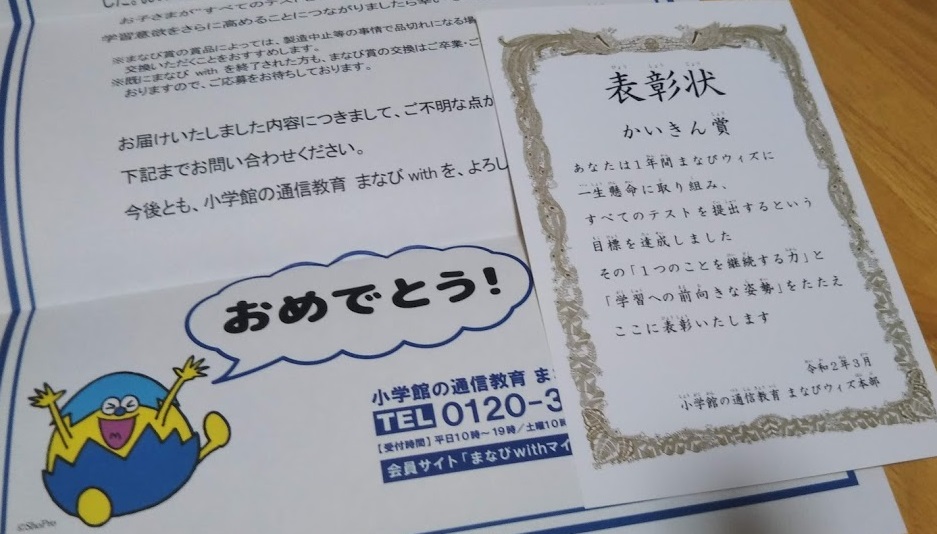 お子さまがすべてのテスト
学習意欲をさらに高めることにつながりましたら幸
※まなび賞の賞品によっては、製造中止等の事情で品切れになる場
交換いただくことをおすすめします。
※既にまなび with を終了された方も、まなび賞の交換はご卒業・ご
おりますので、ご応募をお待ちしております。
お届けいたしました内容につきまして、ご不明な点が
下記までお問い合わせください。
今後とも、小学館の通信教育 まなび withを、よろし
おめでとう!
小学館の通信教育 ま
TEL 0120-3
【受付時間】平日10時～19時／土曜10時
会員サイト「まなびwithマイ
©ShoPro
表彰状
かいきん賞
あなたは1年間まなびウィズに
一生懸命に取り組み、
すべてのテストを提出するという
目標を達成しました
その「1つのことを継続する力」と
「学習への前向きな姿勢」をたたえ
ここに表彰いたします
令和2年3月
小学館の通信教育 まなびウィズ本部